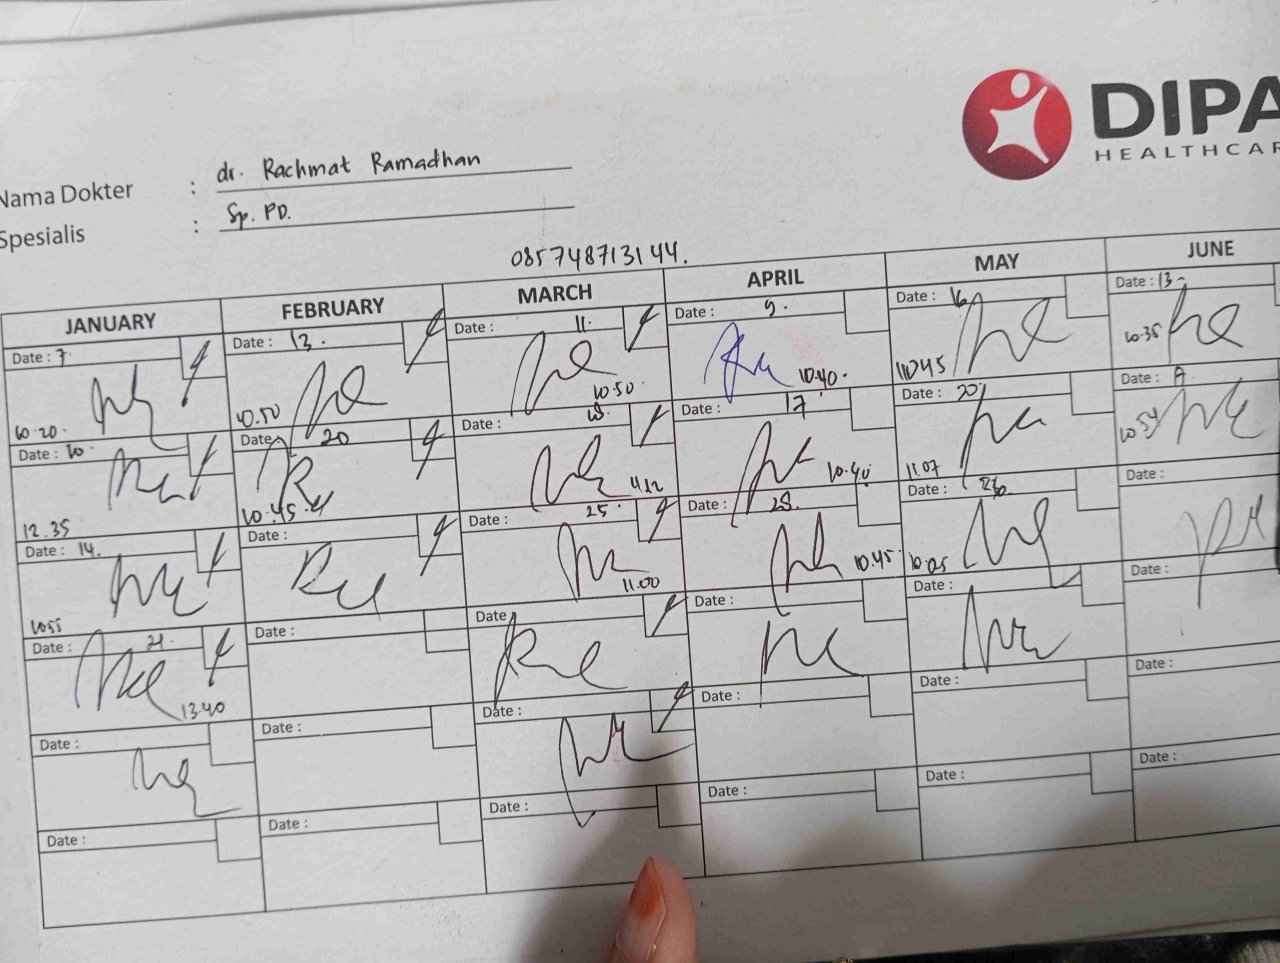 DIPA
HEALTHCAR
Nama Dokter : dr. Rachmat Ramadhan
Spesialis : Sp. PD.
085748713144.
JANUARY FEBRUARY MARCH APRIL MAY JUNE
Date : 7. Date : 13. Date : 11. Date : 9. Date : 16 Date : 13-
10.20. 10.50 10.50. 10.40. 10.35
Date : 10. Date 20 Date : Date : 17 Date : 20 Date :
12.35 10.45 10.40 11.07 10.54
Date : 14. Date : Date : 25 Date : 28. Date : 26. Date :
11.00 10.45 10.05
Date : 21. Date : Date Date : Date : Date :
13.40
Date : Date : Date : Date : Date : Date :
Date : Date : Date : Date : Date : Date :